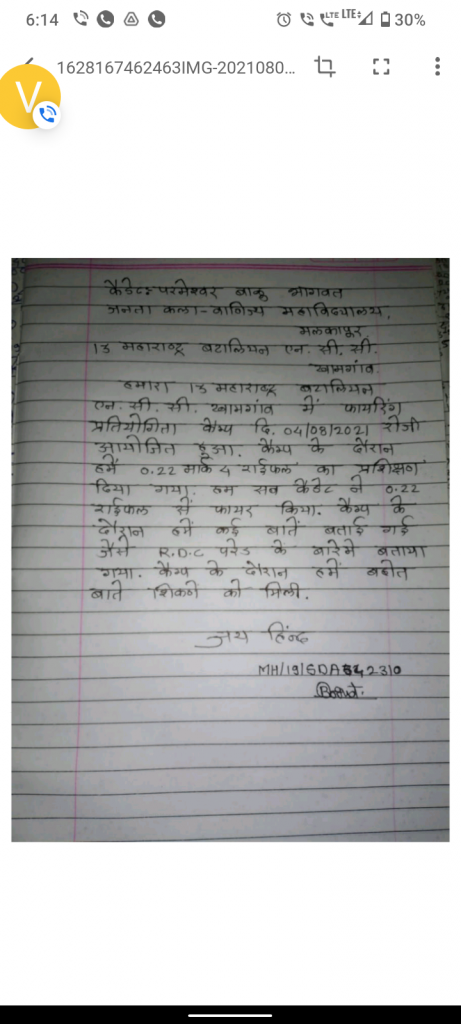 6:14
LTE LTE 30%
1628167462463IMG-2021080...
V
कैडेट:- परमेश्वर बाळू भागवत
जनता कला-वाणिज्य महाविद्यालय,
मलकापूर
13 महाराष्ट्र बटालियन एन. सी. सी.
खामगांव.
हमारा 13 महाराष्ट्र बटालियन
एन. सी. सी. खामगांव में फायरिंग
प्रतियोगिता कॅम्प दि. 04/08/2021 रोजी
आयोजित हुआ. कॅम्प के दौरान
हमें 0.22 मार्क 4 राईफल का प्रशिक्षण
दिया गया. हम सब कॅडेट ने 0.22
राईफल से फायर किया. कॅम्प के
दौरान हमें कई बातें बताई गई
जैसे R.D.C परेड के बारेमे बताया
गया. कॅम्प के दौरान हमें बहोत
बाते शिकने को मिली.
जय हिंन्द
MH/19/SDA 342310